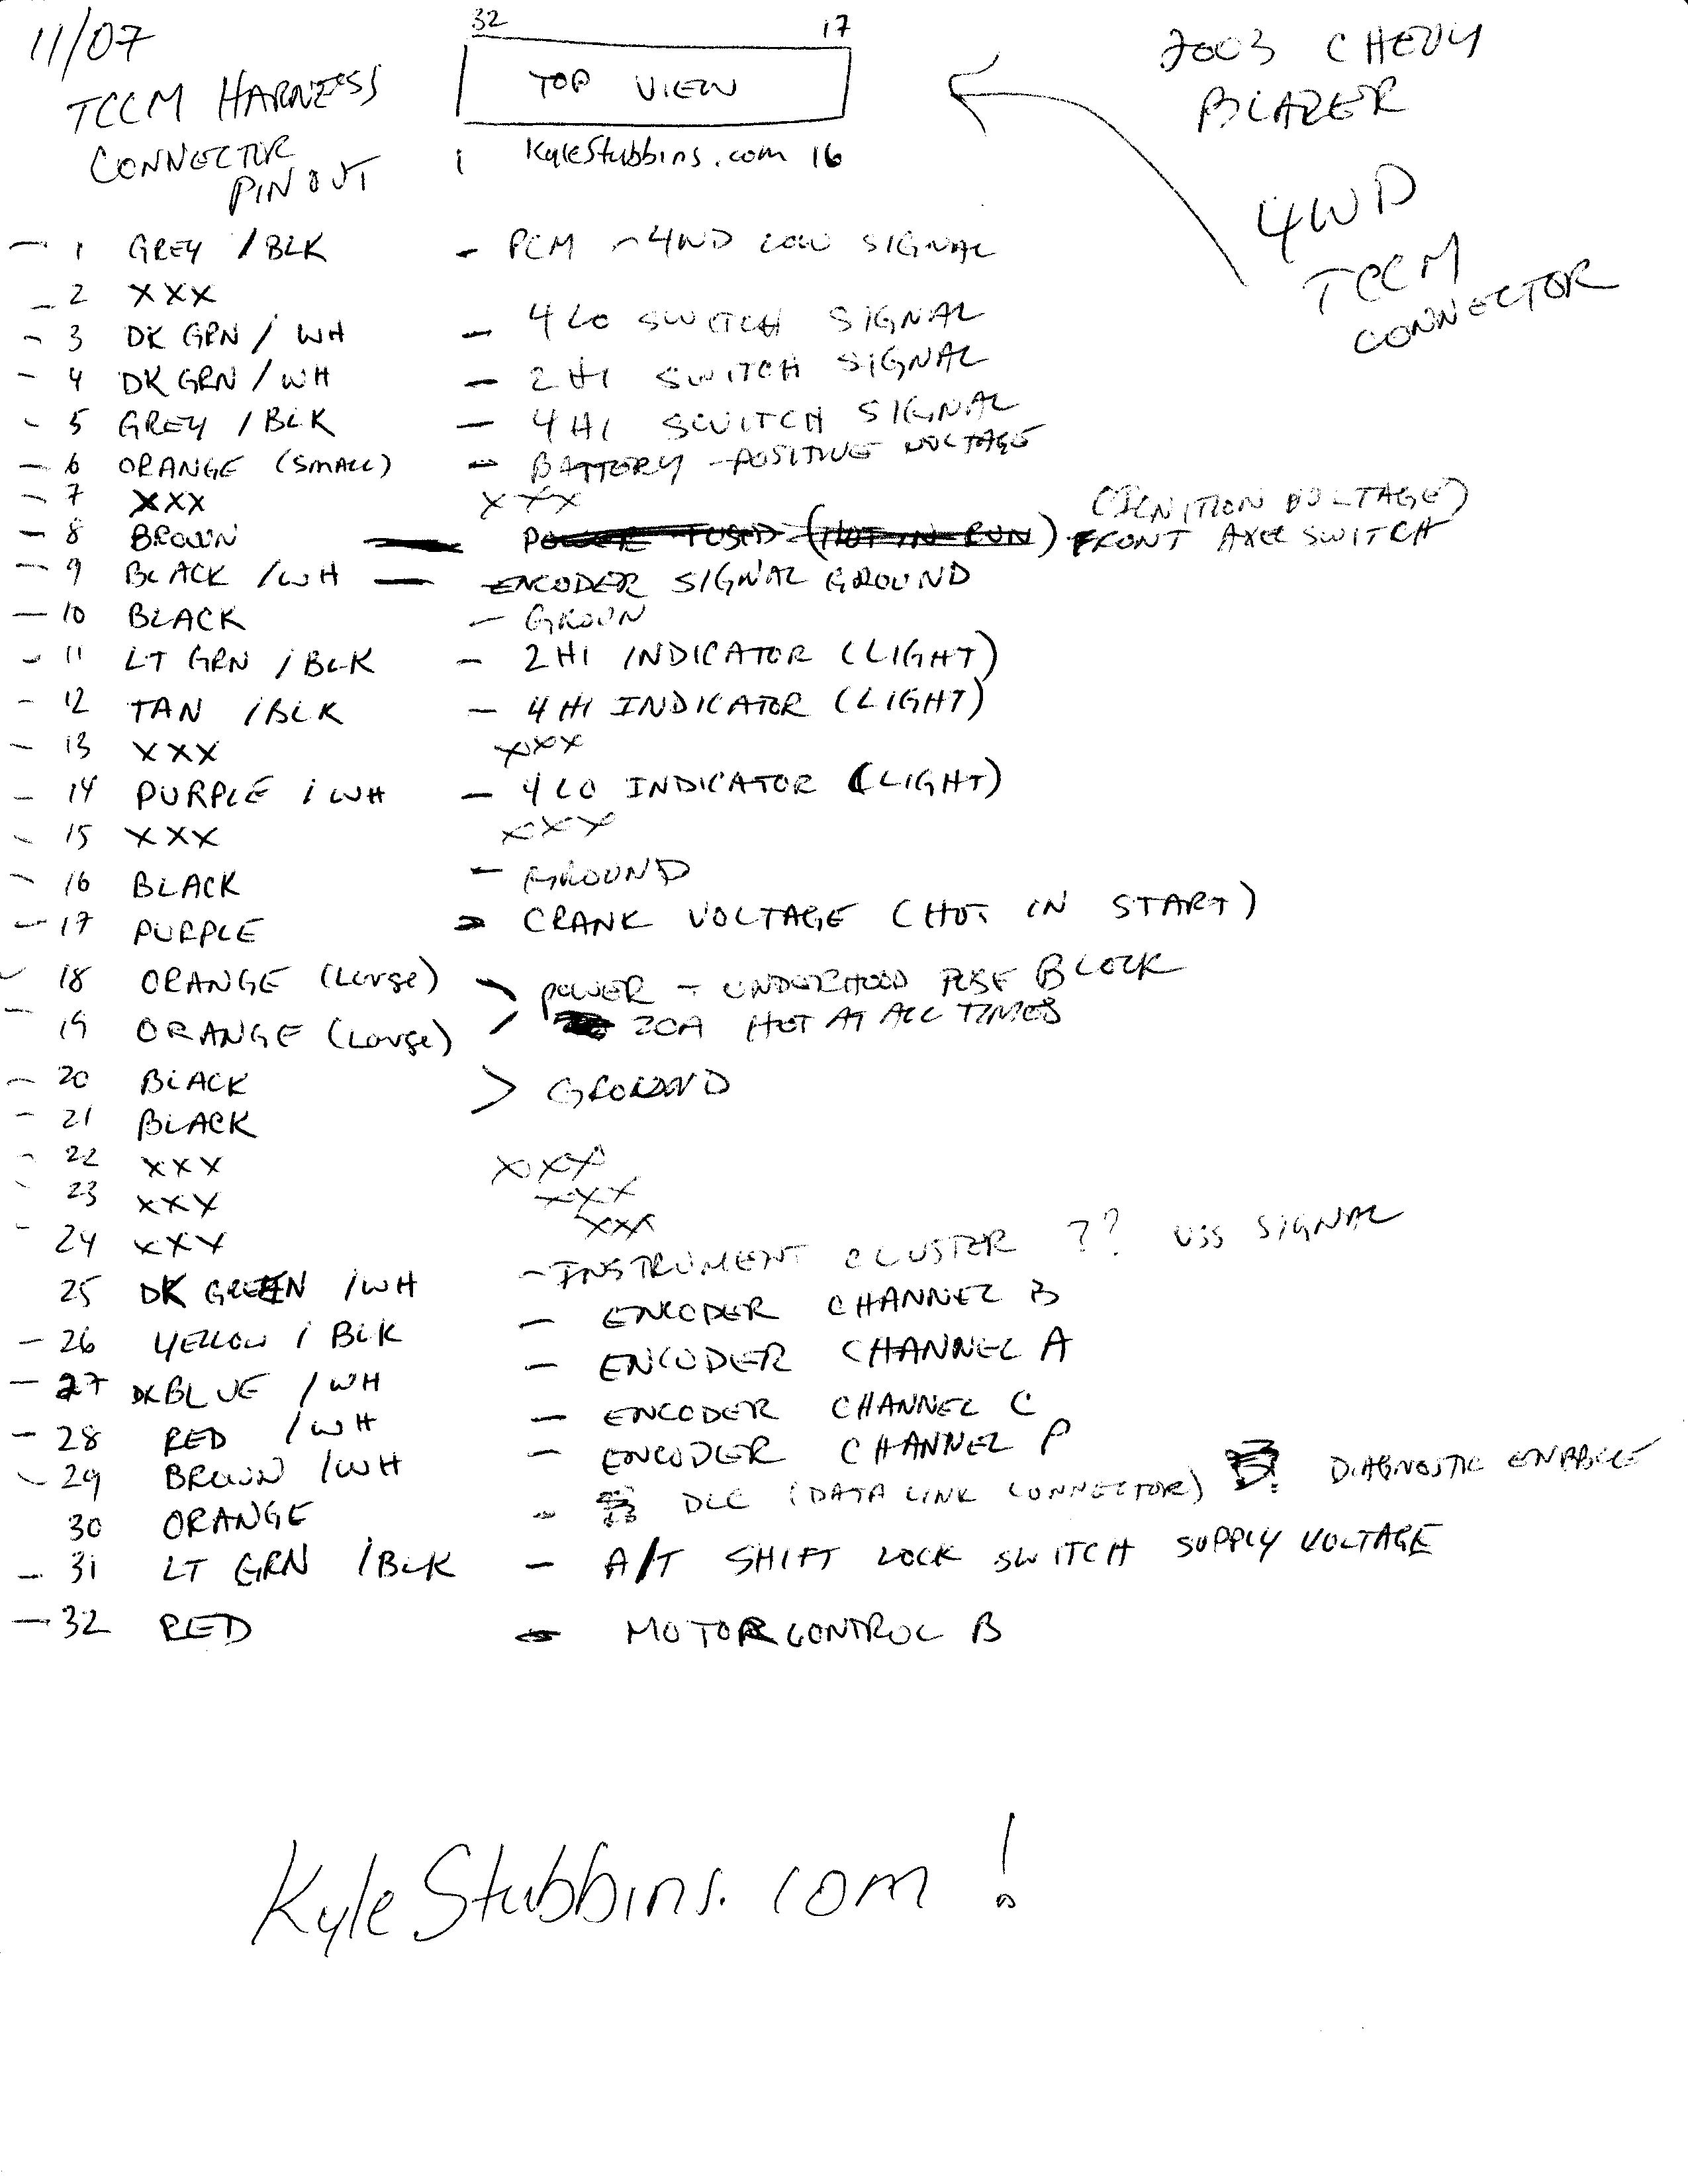 11/07
TCCM HARNESS
CONNECTOR
PINOUT
32 17
TOP VIEW
1 KyleStubbins.com 16
2003 CHEVY
BLAZER
4WD
TCCM
CONNECTOR
— 1 GREY / BLK — PCM — 4WD LOW SIGNAL
— 2 XXX
— 3 DK GRN / WH — 4 LO SWITCH SIGNAL
— 4 DK GRN / WH — 2 HI SWITCH SIGNAL
— 5 GREY / BLK — 4 HI SWITCH SIGNAL
— 6 ORANGE (SMALL) — BATTERY POSITIVE VOLTAGE
— 7 XXX XXX
— 8 BROWN — POWER FUSED (HOT IN RUN) FRONT AXLE SWITCH
(IGNITION VOLTAGE)
— 9 BLACK / WH — ENCODER SIGNAL GROUND
— 10 BLACK — GROUN
— 11 LT GRN / BLK — 2 HI INDICATOR (LIGHT)
— 12 TAN / BLK — 4 HI INDICATOR (LIGHT)
— 13 XXX XXX
— 14 PURPLE / WH — 4 LO INDICATOR (LIGHT)
— 15 XXX XXX
— 16 BLACK — GROUND
— 17 PURPLE — CRANK VOLTAGE (HOT IN START)
— 18 ORANGE (Large) POWER — UNDERHOOD FUSE BLOCK
— 19 ORANGE (Large) 20A HOT AT ALL TIMES
— 20 BLACK > GROUND
— 21 BLACK
— 22 XXX XXX
— 23 XXX XXX
— 24 XXX XXX
25 DK GREEN / WH — INSTRUMENT CLUSTER ?? VSS SIGNAL
— 26 YELLOW / BLK — ENCODER CHANNEL B
— 27 DK BLUE / WH — ENCODER CHANNEL A
— 28 RED / WH — ENCODER CHANNEL C
— 29 BROWN / WH — ENCODER CHANNEL P
30 ORANGE — DLC (DATA LINK CONNECTOR) DIAGNOSTIC ENABLE
— 31 LT GRN / BLK — A/T SHIFT LOCK SWITCH SUPPLY VOLTAGE
— 32 RED — MOTOR CONTROL B
KyleStubbins.com !